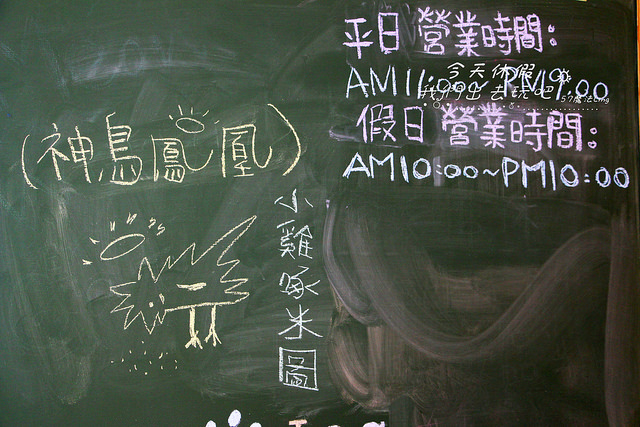 平日營業時間:
AM11:00~
今天休假
我們出去玩吧
假日營業時間:
AM10:00~PM10:00
(神鳥鳳凰)
小雞啄米圖